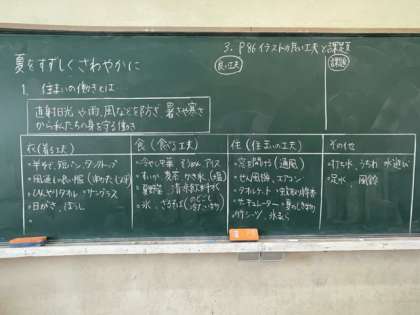 夏をすずしくさわやかに
1. 住まいの働きとは
直射日光や雨、風などを防ぎ、暑さや寒さ
から私たちの身を守る働き
3. P86イラストの良い工夫と課題
良い工夫
課題
衣(着る工夫)
・半そで、短パン、タンクトップ
・風通しの良い服
・ひんやりタオル ・サングラス
・日がさ、ぼうし
食(食べる工夫)
・冷やし中華 そうめん アイス
・すいか 麦茶 かき氷
・夏野菜 清涼飲料水
・氷、ざるそば(のどごし
住(住まいの工夫)
・窓を開ける(通風)
・せん風機、エアコン
・タオルケット
・サーキュレーター
・竹シーツ、氷まくら
その他
・打ち水、うちわ 水遊び
・足水、・風鈴